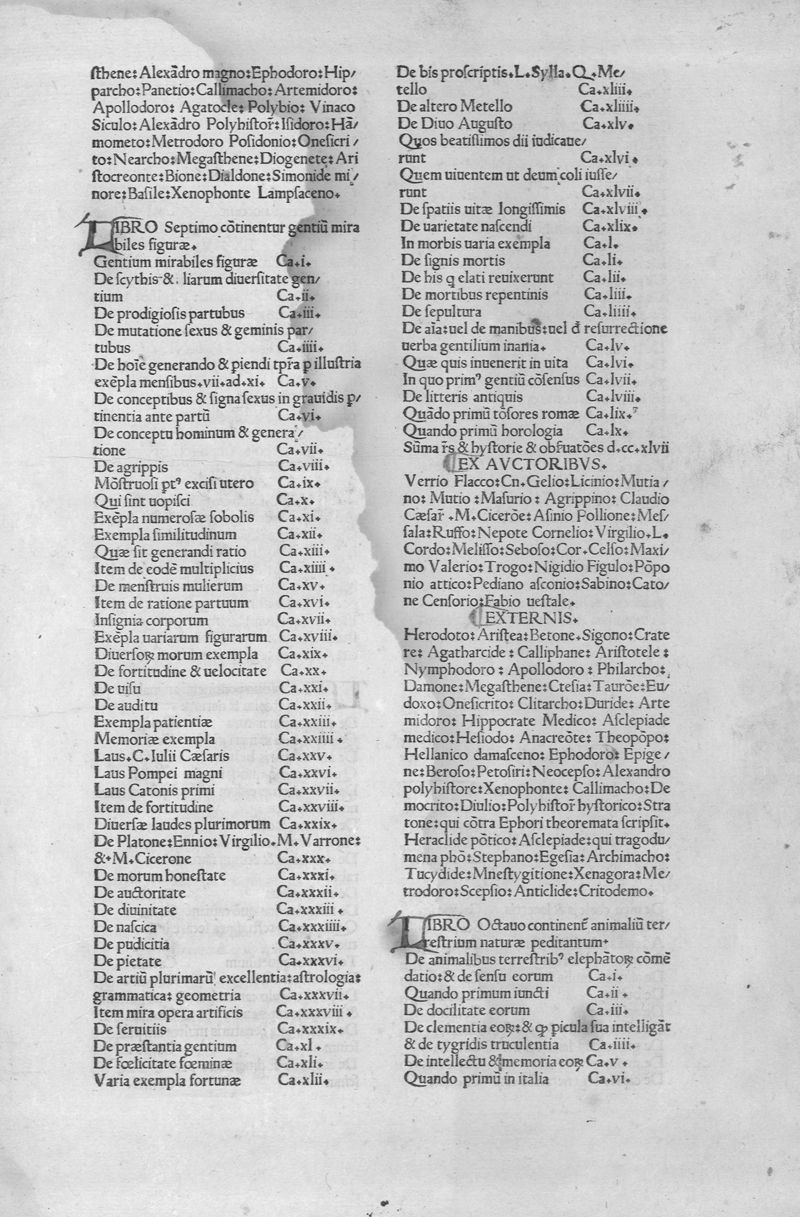 sthene: Alexādro magno: Ephodoro: Hip/
parcho: Panetio: Callimacho: Artemidoro:
Apollodoro: Agatocle: Polybio: Vinaco
Siculo: Alexādro Polyhistor̄: Isidoro: Hā/
mometo: Metrodoro Posidonio: Onesicri/
to: Nearcho: Megasthene: Diogenete: Ari
stocreonte: Bione: Dialdone: Simonide mi/
nore: Basile: Xenophonte Lampsaceno.
LIBRO Septimo cōtinentur gentiū mira
biles figuræ.
Gentium mirabiles figuræ Ca.i.
De scythis & liarum diuersitate gen/
tium Ca.ii.
De prodigiosis partubus Ca.iii.
De mutatione sexus & geminis par/
tubus Ca.iiii.
De hoīe generando & piendi tpr̄a p illustria
exēpla mensibus.vii.ad.xi. Ca.v.
De conceptibus & signa sexus in grauidis p/
tinentia ante partū Ca.vi.
De conceptu hominum & genera/
tione Ca.vii.
De agrippis Ca.viii.
Mōstruosi ptꝰ excisi utero Ca.ix.
Qui sint uopisci Ca.x.
Exēpla numerosæ sobolis Ca.xi.
Exempla similitudinum Ca.xii.
Quæ sit generandi ratio Ca.xiii.
Item de eodē multiplicius Ca.xiiii.
De menstruis mulierum Ca.xv.
Item de ratione partuum Ca.xvi.
Insignia corporum Ca.xvii.
Exēpla uariarum figurarum Ca.xviii.
Diuersoꝝ morum exempla Ca.xix.
De fortitudine & uelocitate Ca.xx.
De uisu Ca.xxi.
De auditu Ca.xxii.
Exempla patientiæ Ca.xxiii.
Memoriæ exempla Ca.xxiiii.
Laus.C.Iulii Cæsaris Ca.xxv.
Laus Pompei magni Ca.xxvi.
Laus Catonis primi Ca.xxvii.
Item de fortitudine Ca.xxviii.
Diuersæ laudes plurimorum Ca.xxix.
De Platone: Ennio: Virgilio.M.Varrone:
&.M.Cicerone Ca.xxx.
De morum honestate Ca.xxxi.
De auctoritate Ca.xxxii.
De diuinitate Ca.xxxiii.
De nascica Ca.xxxiiii.
De pudicitia Ca.xxxv.
De pietate Ca.xxxvi.
De artiū plurimarū excellentia: astrologia:
grammatica: geometria Ca.xxxvii.
Item mira opera artificis Ca.xxxviii.
De seruitiis Ca.xxxix.
De præstantia gentium Ca.xl.
De fœlicitate fœminæ Ca.xli.
Varia exempla fortunæ Ca.xlii.
De bis proscriptis.L.Sylla.Q.Me/
tello Ca.xliii.
De altero Metello Ca.xliiii.
De Diuo Augusto Ca.xlv.
Quos beatissimos dii iudicaue/
runt Ca.xlvi.
Quem uiuentem ut deum coli iusse/
runt Ca.xlvii.
De spatiis uitæ longissimis Ca.xlviii.
De uarietate nascendi Ca.xlix.
In morbis uaria exempla Ca.l.
De signis mortis Ca.li.
De his q elati reuixerunt Ca.lii.
De mortibus repentinis Ca.liii.
De sepultura Ca.liiii.
De aīa: uel de manibus: uel d resurrectione
uerba gentilium inania. Ca.lv.
Quæ quis inuenerit in uita Ca.lvi.
In quo primꝰ gentiū cōsensus Ca.lvii.
De litteris antiquis Ca.lviii.
Quādo primū tōsores romæ Ca.lix.
Quando primū horologia Ca.lx.
Sūma r̄s & hystorie & obsuatōes d.cc.xlvii
EX AVCTORIBVS.
Verrio Flacco: Cn.Gelio: Licinio: Mutia/
no: Mutio: Masurio: Agrippino: Claudio
Cæsar̄.M.Cicerōe: Asinio Pollione: Mes/
sala: Ruffo: Nepote Cornelio: Virgilio.L.
Cordo: Melisso: Seboso: Cor.Celso: Maxi/
mo Valerio: Trogo: Nigidio Figulo: Pōpo
nio attico: Pediano asconio: Sabino: Cato/
ne Censorio: Fabio uestale.
EXTERNIS.
Herodoto: Aristea: Betone.Sigono: Crate
re: Agatharcide: Calliphane: Aristotele:
Nymphodoro: Apollodoro: Philarcho:
Damone: Megasthene: Ctesia: Taurōe: Eu/
doxo: Onesicrito: Clitarcho: Duride: Arte
midoro: Hippocrate Medico: Asclepiade
medico: Hesiodo: Anacreōte: Theopōpo:
Hellanico damasceno: Ephodoro: Epige/
ne: Beroso: Petosiri: Neocepso: Alexandro
polyhistore: Xenophonte: Callimacho: De
mocrito: Diulio: Polyhistor̄ hystorico: Stra
tone: qui cōtra Ephori theoremata scripsit.
Heraclide pōtico: Asclepiade: qui tragodu/
mena phō: Stephano: Egesia: Archimacho:
Tucydide: Mnestygitione: Xenagora: Me/
trodoro: Scepsio: Anticlide: Critodemo.
LIBRO Octauo continent̄ animaliū ter/
restrium naturæ peditantum.
De animalibus terrestribꝰ elephātoꝝ cōmē
datio: & de sensu eorum Ca.i.
Quando primum iuncti Ca.ii.
De docilitate eorum Ca.iii.
De clementia eoꝝ: & ꝙ picula sua intelligāt
& de tygridis truculentia Ca.iiii.
De intellectu & memoria eoꝝ Ca.v.
Quando primū in italia Ca.vi.